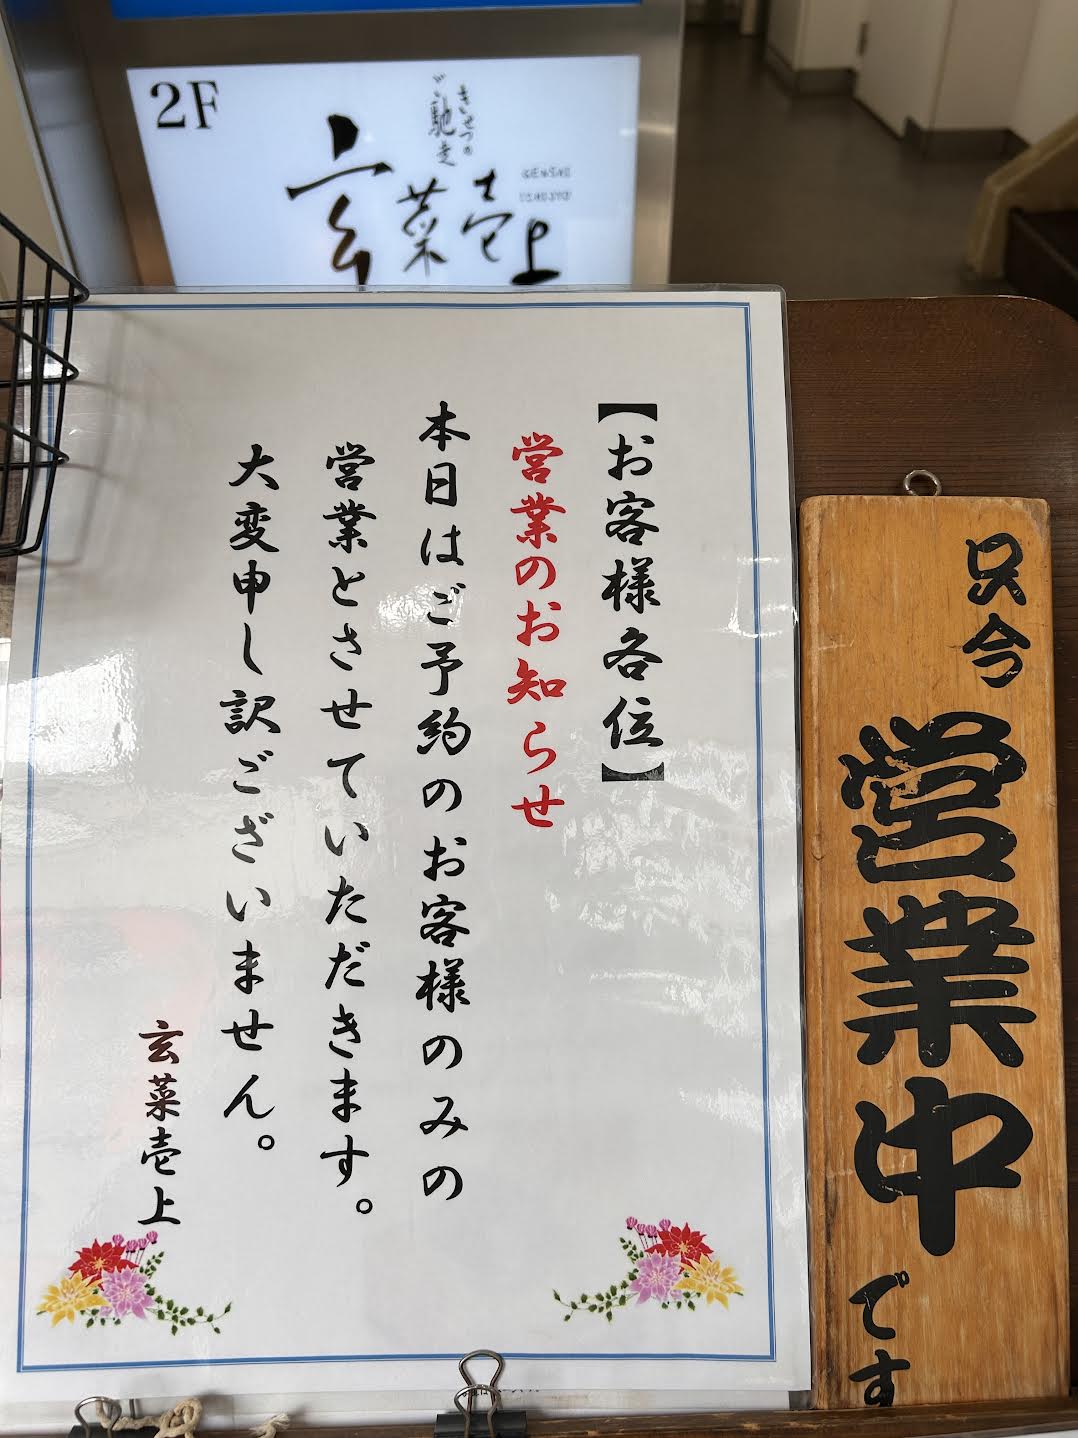 2F
きせつのご馳走
玄菜壱上
GENSAI
ICHIJYO
【お客様各位】
営業のお知らせ
本日はご予約のお客様のみの
営業とさせていただきます。
大変申し訳ございません。
玄菜壱上
只今
営業中
です